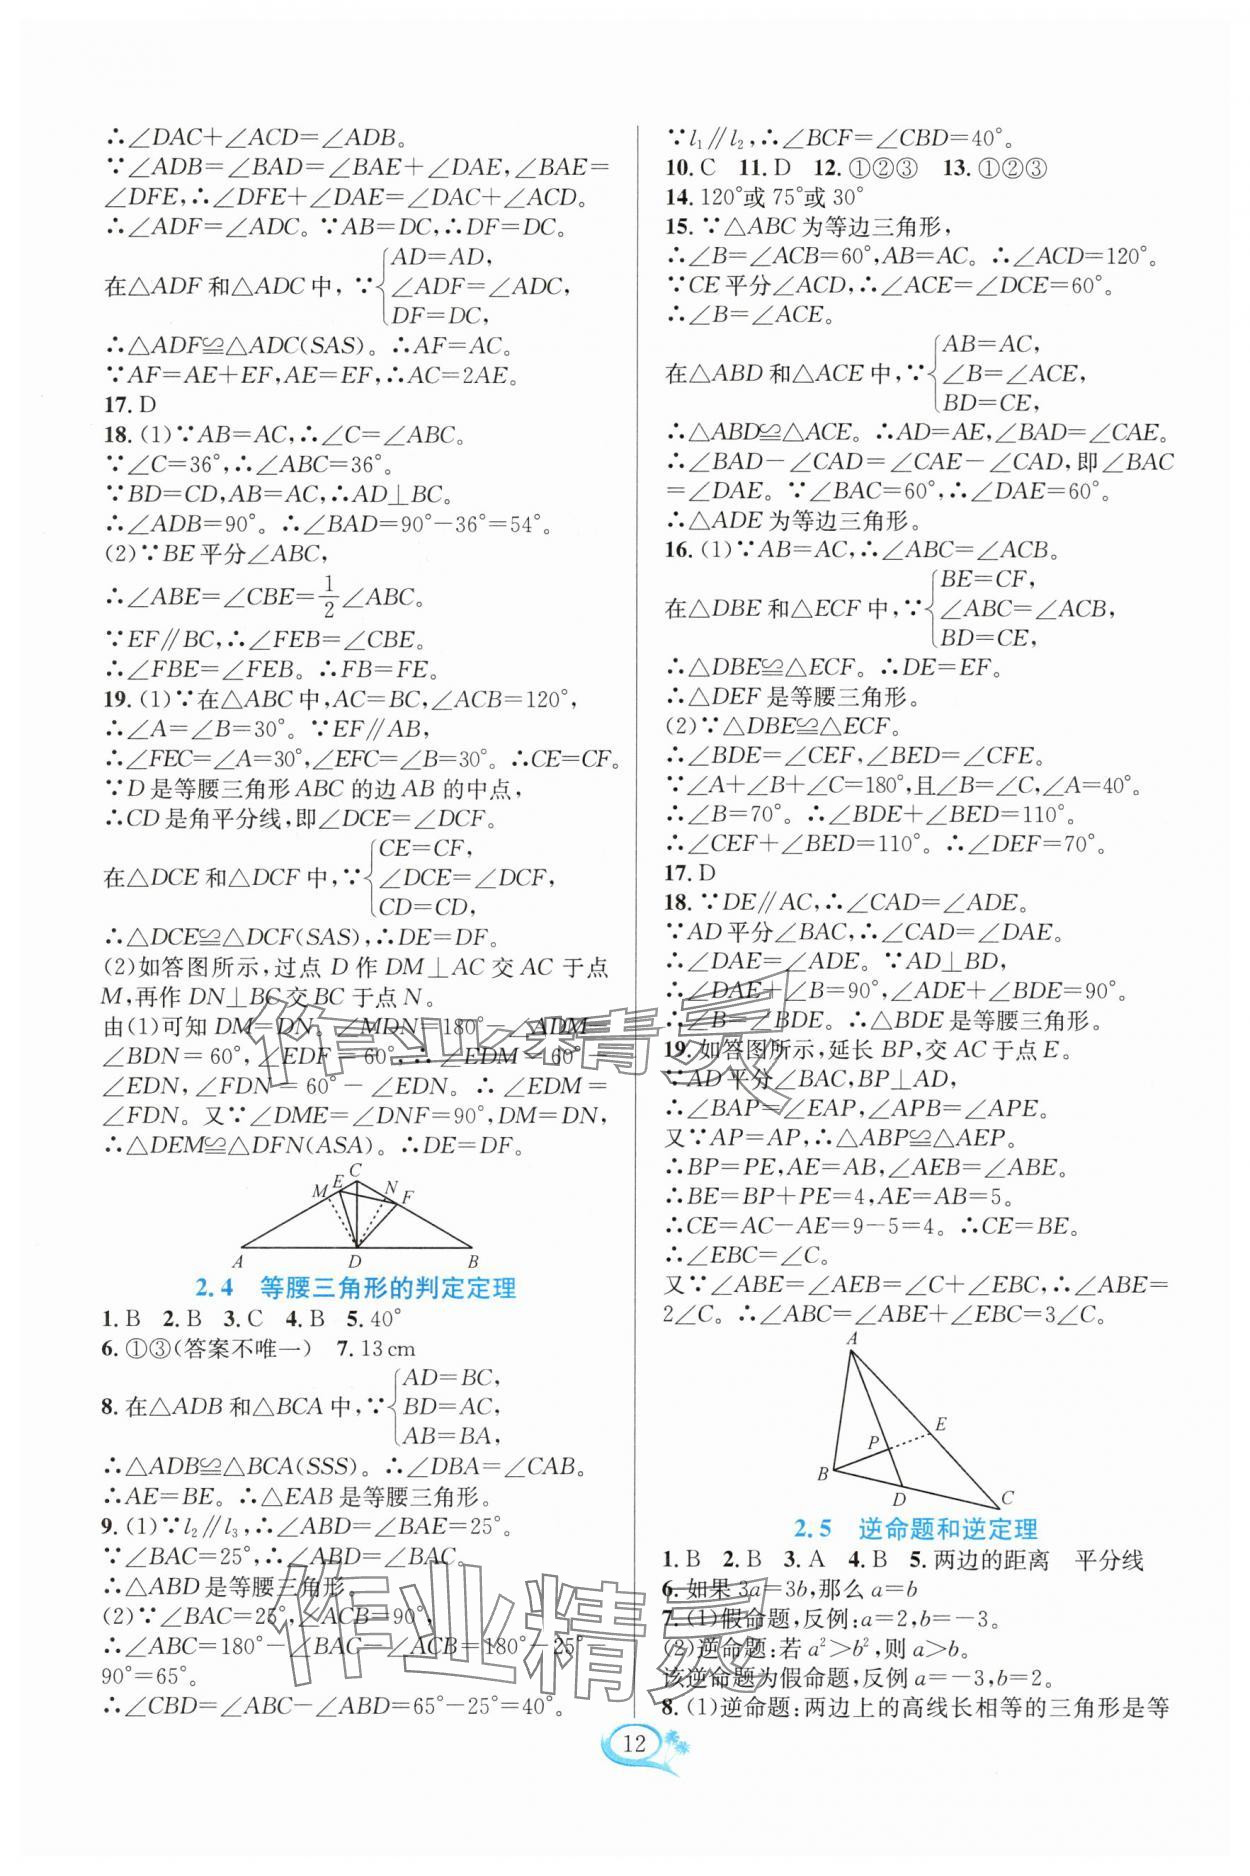 ∴∠DAC+∠ACD=∠ADB。
∵∠ADB=∠BAD=∠BAE+∠DAE,∠BAE=
∠DFE,∴∠DFE+∠DAE=∠DAC+∠ACD。
∴∠ADF=∠ADC。∵AB=DC,∴DF=DC。
在△ADF和△ADC中,∵{AD=AD,
∠ADF=∠ADC,
DF=DC,
∴△ADF≌△ADC(SAS)。∴AF=AC。
∵AF=AE+EF,AE=EF,∴AC=2AE。
17.D
18.(1)∵AB=AC,∴∠C=∠ABC。
∵∠C=36°,∴∠ABC=36°。
∵BD=CD,AB=AC,∴AD⊥BC。
∴∠ADB=90°。∴∠BAD=90°-36°=54°。
(2)∵BE平分∠ABC,
∴∠ABE=∠CBE=1/2∠ABC。
∵EF∥BC,∴∠FEB=∠CBE。
∴∠FBE=∠FEB。∴FB=FE。
19.(1)∵在△ABC中,AC=BC,∠ACB=120°,
∴∠A=∠B=30°。∵EF∥AB,
∴∠FEC=∠A=30°,∠EFC=∠B=30°。∴CE=CF。
∵D是等腰三角形ABC的边AB的中点,
∴CD是角平分线,即∠DCE=∠DCF。
在△DCE和△DCF中,∵{CE=CF,
∠DCE=∠DCF,
CD=CD,
∴△DCE≌△DCF(SAS),∴DE=DF。
(2)如答图所示,过点D作DM⊥AC交AC于点
M,再作DN⊥BC交BC于点N。
由(1)可知DM=DN。∠MDN=180°-∠ADM-
∠BDN=60°,∠EDF=60°,∴∠EDM=60°-
∠EDN,∠FDN=60°-∠EDN。∴∠EDM=
∠FDN。又∵∠DME=∠DNF=90°,DM=DN,
∴△DEM≌△DFN(ASA)。∴DE=DF。
C
M E N F
A D B
2.4 等腰三角形的判定定理
1.B 2.B 3.C 4.B 5.40°
6.①③(答案不唯一) 7.13cm
8.在△ADB和△BCA中,∵{AD=BC,
BD=AC,
AB=BA,
∴△ADB≌△BCA(SSS)。∴∠DBA=∠CAB。
∴AE=BE。∴△EAB是等腰三角形。
9.(1)∵l₂∥l₃,∴∠ABD=∠BAE=25°。
∵∠BAC=25°,∴∠ABD=∠BAC。
∴△ABD是等腰三角形。
(2)∵∠BAC=25°,∠ACB=90°,
∴∠ABC=180°-∠BAC-∠ACB=180°-25°-
90°=65°。
∴∠CBD=∠ABC-∠ABD=65°-25°=40°。
∵l₁∥l₂,∴∠BCF=∠CBD=40°。
10.C 11.D 12.①②③ 13.①②③
14.120°或75°或30°
15.∵△ABC为等边三角形,
∴∠B=∠ACB=60°,AB=AC。∴∠ACD=120°。
∵CE平分∠ACD,∴∠ACE=∠DCE=60°。
∴∠B=∠ACE。
在△ABD和△ACE中,∵{AB=AC,
∠B=∠ACE,
BD=CE,
∴△ABD≌△ACE。∴AD=AE,∠BAD=∠CAE。
∴∠BAD-∠CAD=∠CAE-∠CAD,即∠BAC
=∠DAE。∵∠BAC=60°,∴∠DAE=60°。
∴△ADE为等边三角形。
16.(1)∵AB=AC,∴∠ABC=∠ACB。
在△DBE和△ECF中,∵{BE=CF,
∠ABC=∠ACB,
BD=CE,
∴△DBE≌△ECF。∴DE=EF。
∴△DEF是等腰三角形。
(2)∵△DBE≌△ECF。
∴∠BDE=∠CEF,∠BED=∠CFE。
∵∠A+∠B+∠C=180°,且∠B=∠C,∠A=40°。
∴∠B=70°。∴∠BDE+∠BED=110°。
∴∠CEF+∠BED=110°。∴∠DEF=70°。
17.D
18.∵DE∥AC,∴∠CAD=∠ADE。
∵AD平分∠BAC,∴∠CAD=∠DAE。
∴∠DAE=∠ADE。∵AD⊥BD,
∴∠DAE+∠B=90°,∠ADE+∠BDE=90°。
∴∠B=∠BDE。∴△BDE是等腰三角形。
19.如答图所示,延长BP,交AC于点E。
∵AD平分∠BAC,BP⊥AD,
∴∠BAP=∠EAP,∠APB=∠APE。
又∵AP=AP,∴△ABP≌△AEP。
∴BP=PE,AE=AB,∠AEB=∠ABE。
∴BE=BP+PE=4,AE=AB=5。
∴CE=AC-AE=9-5=4。∴CE=BE。
∴∠EBC=∠C。
又∵∠ABE=∠AEB=∠C+∠EBC,∴∠ABE=
2∠C。∴∠ABC=∠ABE+∠EBC=3∠C。
A
E
P
B
D
C
2.5 逆命题和逆定理
1.B 2.B 3.A 4.B 5.两边的距离 平分线
6.如果3a=3b,那么a=b
7.(1)假命题,反例:a=2,b=-3。
(2)逆命题:若a²>b²,则a>b。
该逆命题为假命题,反例a=-3,b=2。
8.(1)逆命题:两边上的高线长相等的三角形是等
12
作业精灵
作业精灵